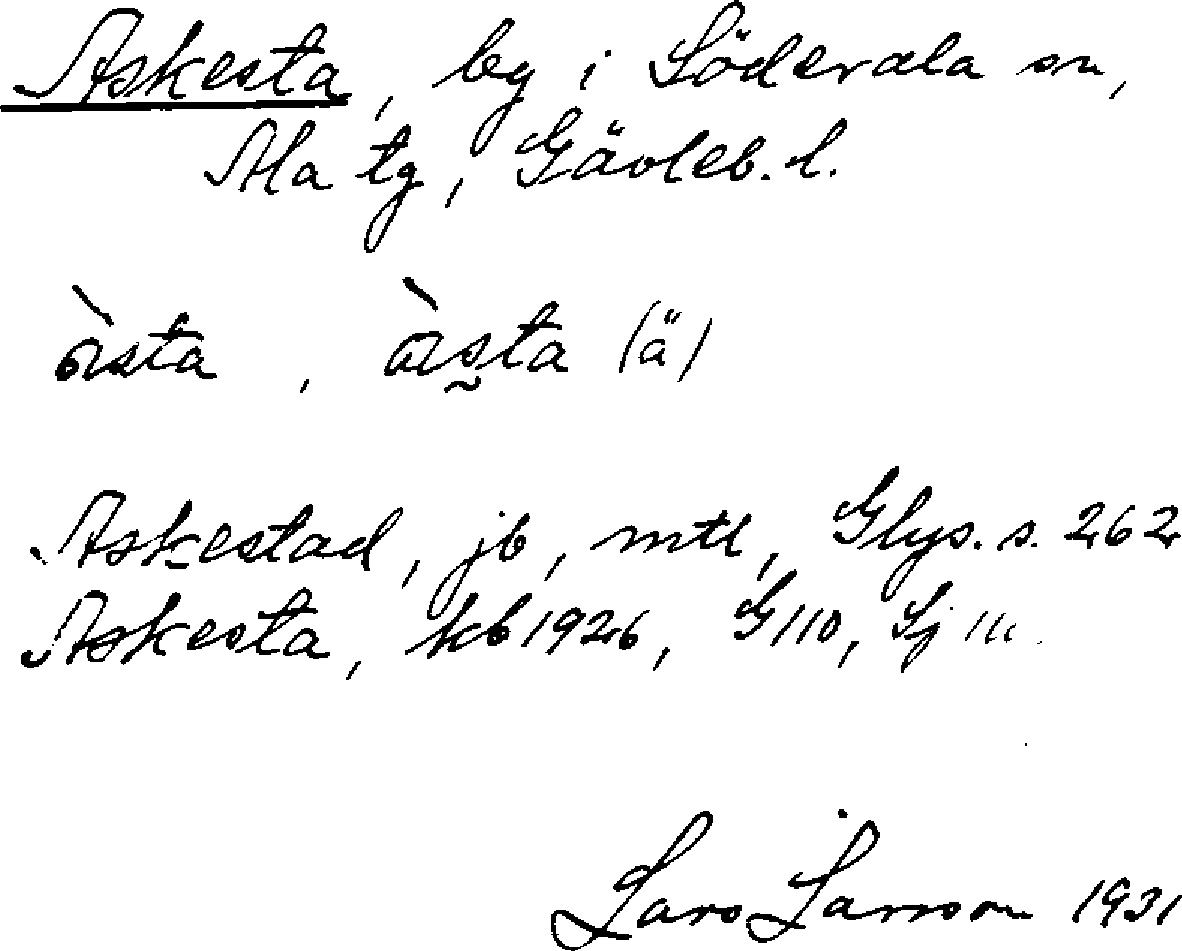 Askesta, by i Söderala sn,
Ala tg, Gävleb. l.
(ä)
Askestad, jb, mtl, Glys. s. 262
Askesta, kb 1926, G 110, Sj 111.
Lars Larsson 1931